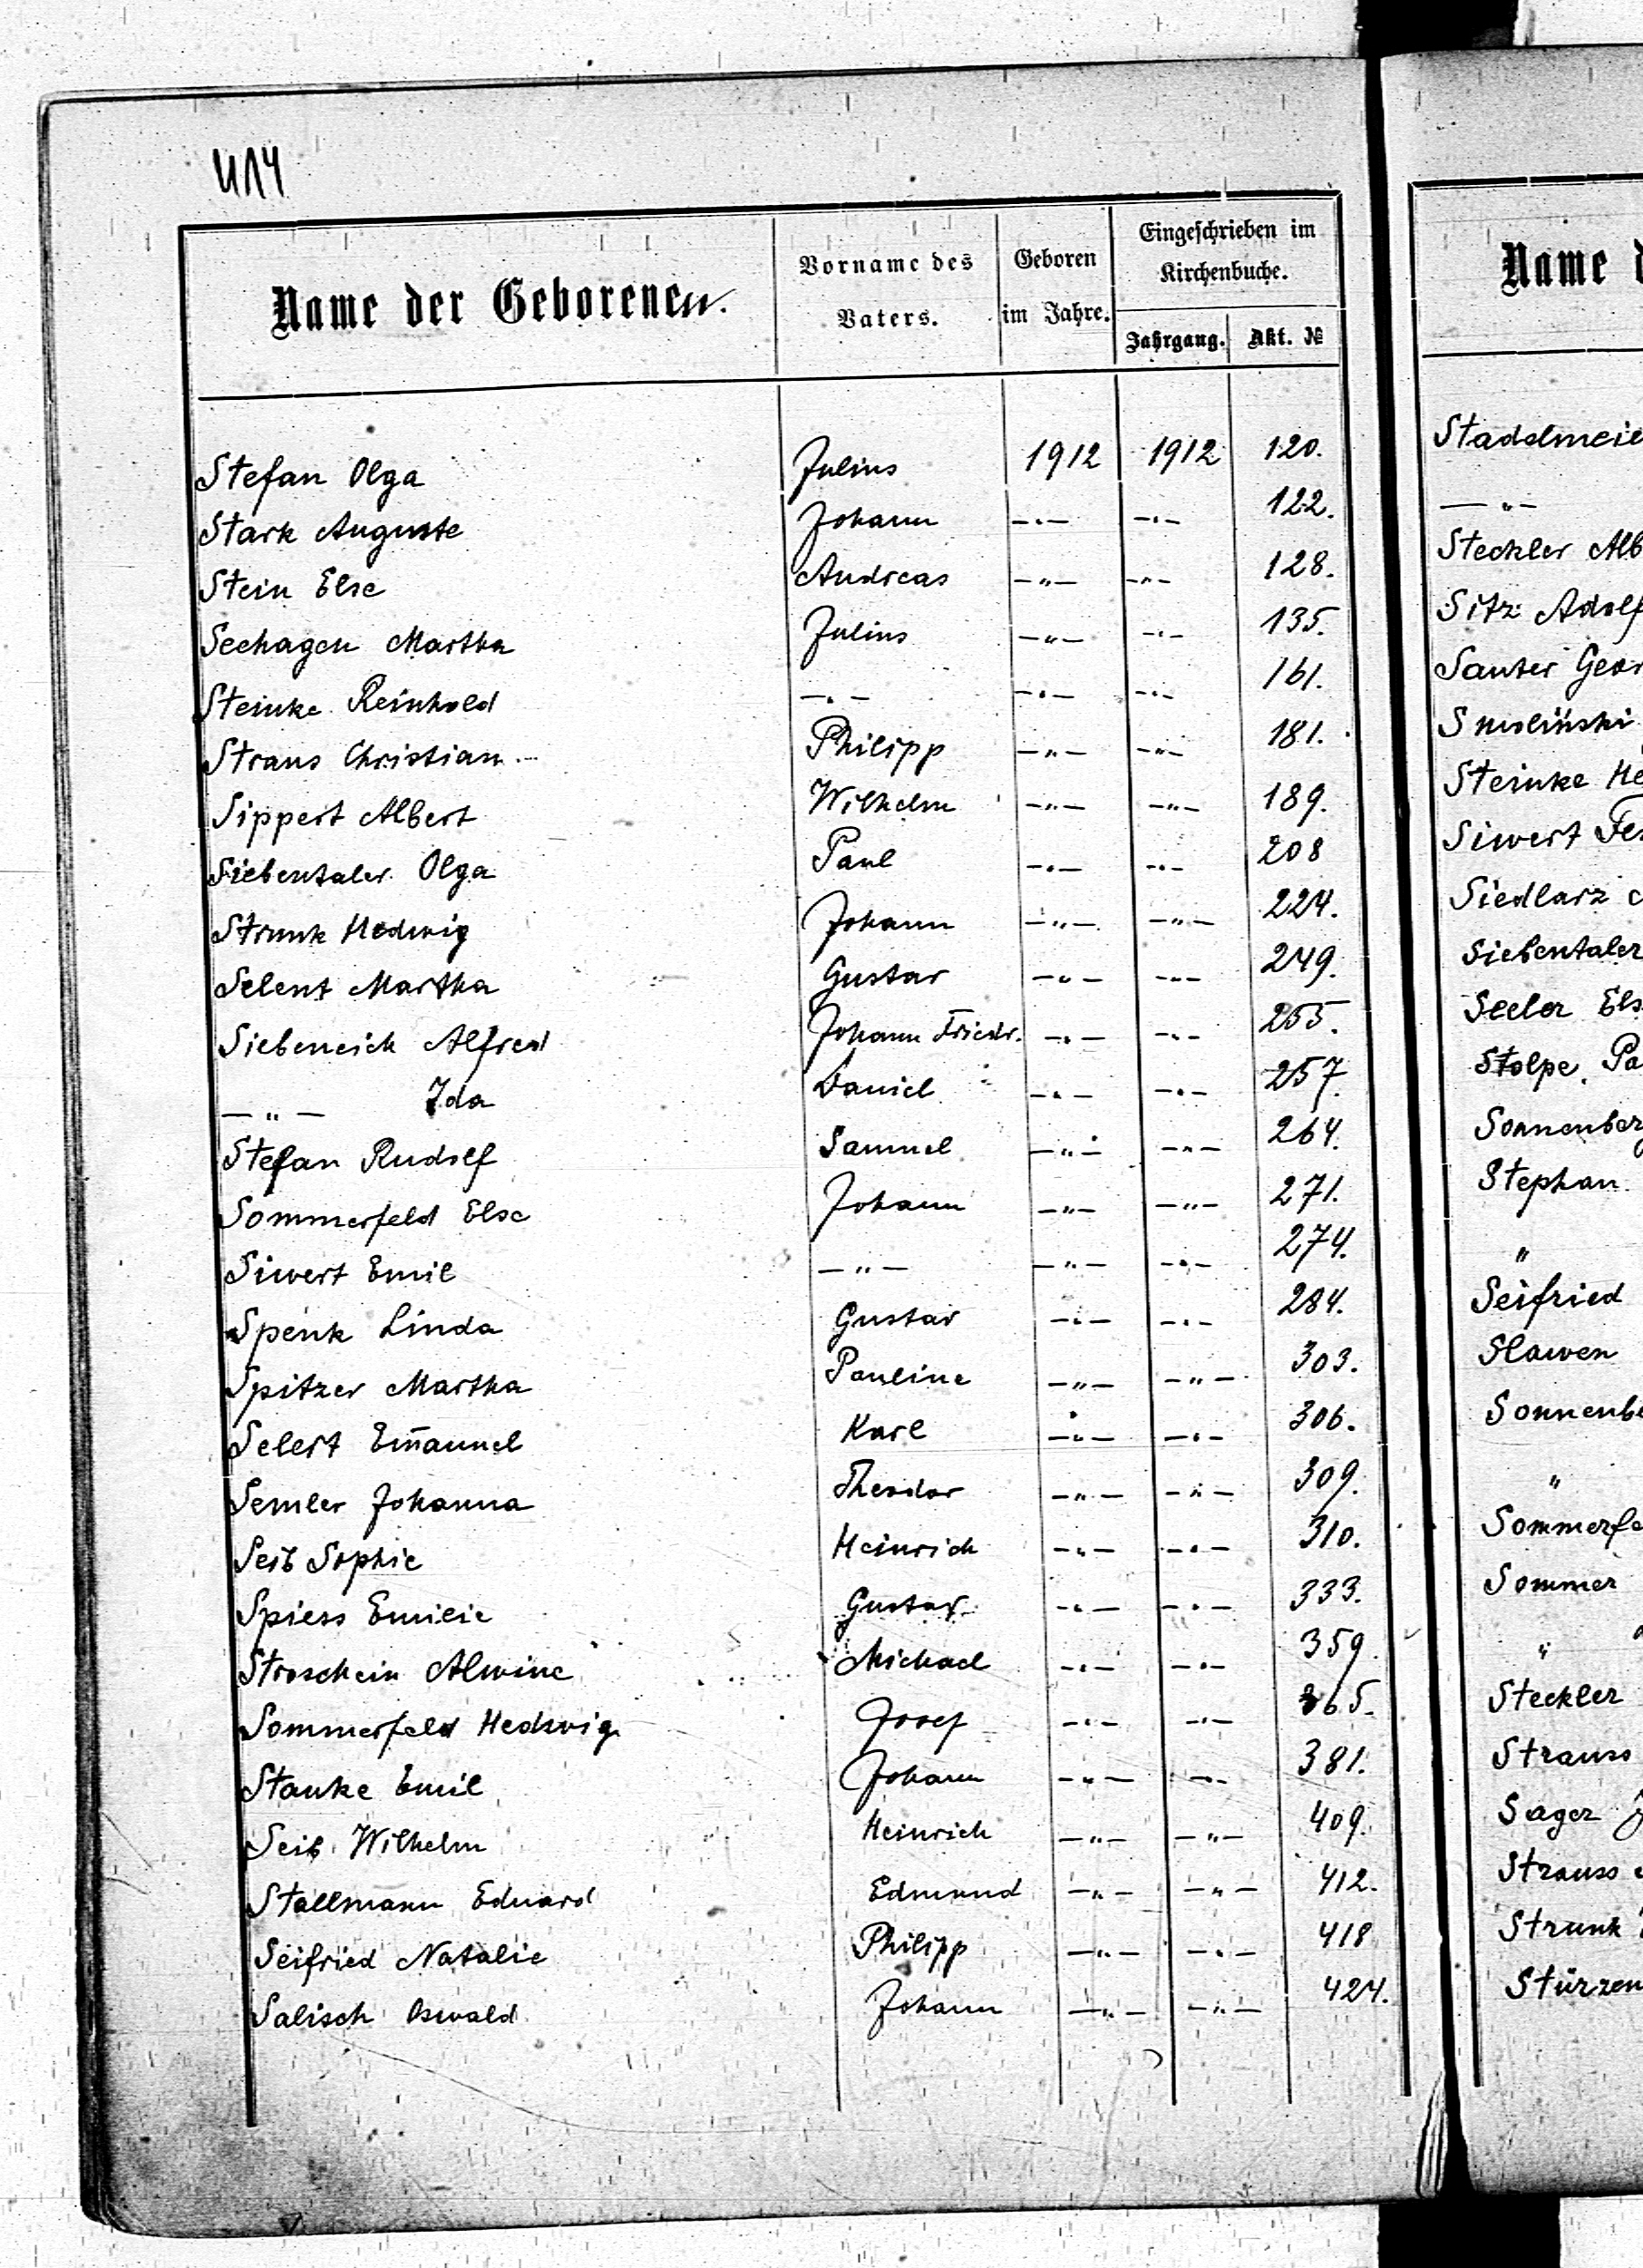 414
Name der Geborenen.
Vorname des Vaters.
Geboren im Jahre.
Eingeschrieben im Kirchenbuche.
Jahrgang. Akt. №
Stefan Olga Julius 1912 1912 120.
Stark Auguste Johann —"— —"— 122.
Stein Else Andreas —"— —"— 128.
Seehagen Martha Julius —"— —"— 135.
Steinke Reinhold —"— —"— —"— 161.
Straus Christian Philipp —"— —"— 181.
Sippert Albert Wilhelm —"— —"— 189.
Siebentaler Olga Paul —"— —"— 208
Strunk Hedwig Johann —"— —"— 224.
Selent Martha Gustav —"— —"— 249.
Siebeneich Alfred Johann Friedr. —"— —"— 255.
—"— Ida Daniel —"— —"— 257.
Stefan Rudolf Samuel —"— —"— 264.
Sommerfeld Else Johann —"— —"— 271.
Siwert Emil —"— —"— —"— 274.
Spenk Linda Gustav —"— —"— 284.
Spitzer Martha Pauline —"— —"— 303.
Selert Em̄anuel Karl —"— —"— 306.
Semler Johanna Theodor —"— —"— 309.
Seib Sophie Heinrich —"— —"— 310.
Spiess Emilie Gustav —"— —"— 333.
Stroschein Alwine Michael —"— —"— 359.
Sommerfeld Hedwig Josef —"— —"— 365.
Stanke Emil Johann —"— —"— 381.
Seib Wilhelm Heinrich —"— —"— 409.
Stallmann Eduard Edmund —"— —"— 412.
Seifried Natalie Philipp —"— —"— 418
Salisch Oswald Johann —"— —"— 424.
Name d
Stadelmeie
—"—
Steckler Alb
Sitz Adolf
Sauter Geor
Smoliński
Steinke He
Siwert Fer
Siedlarz
Siebentaler
Seeler Els
Stolpe Pa
Sonnenberg
Stephan
"
Seifried
Slawen
Sonnenbe
"
Sommerfe
Sommer
"
Steckler
Strauss
Sager J
Strauss
Strunk
Stürzen